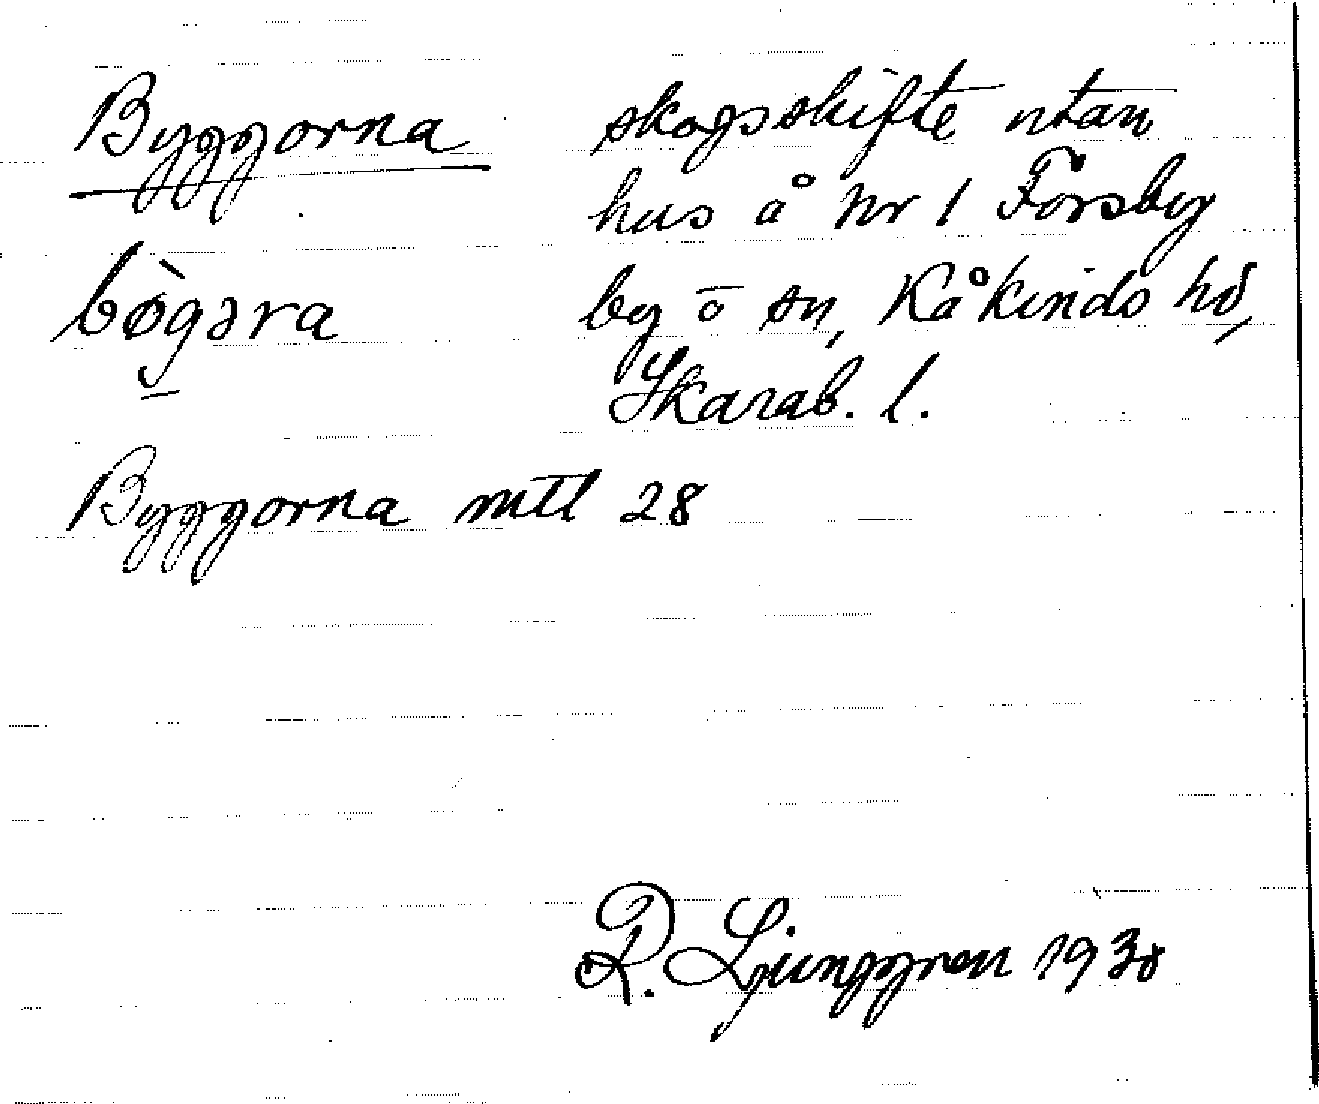 Byggorna skogsskifte utan
hus å Nr 1 Forsby
bø̀gəra by o sn, Kåkinds hd,
Skarab. l.
Byggorna mtl 28
R. Ljunggren 1930